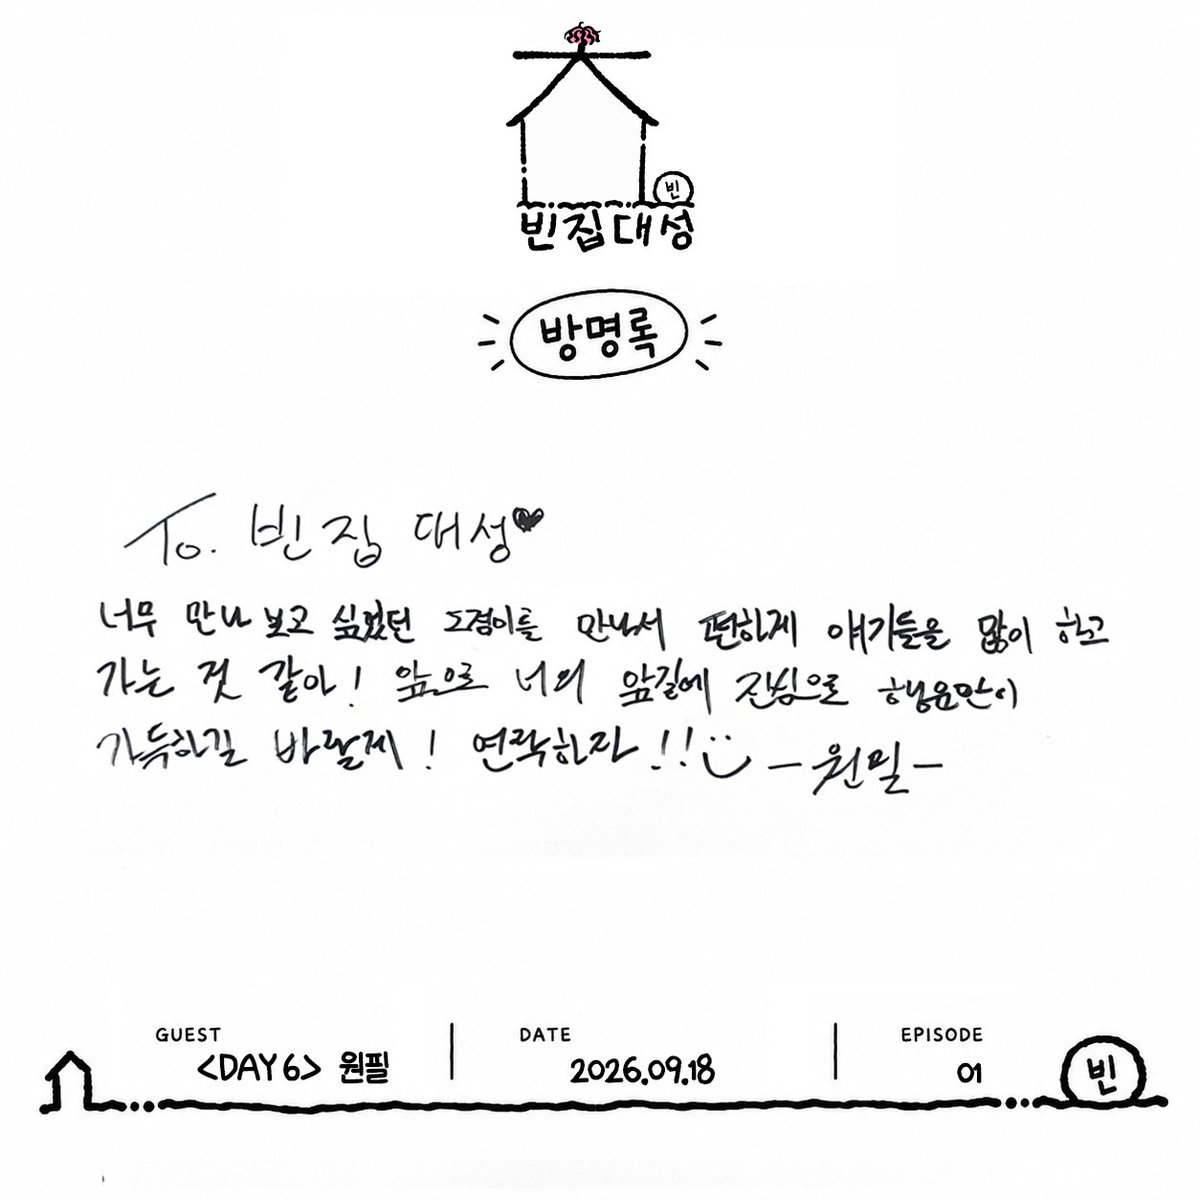 빈
빈집대성
방명록
To. 빈집 대성♥
너무 만나 보고 싶었던 도겸이를 만나서 편하게 얘기들을 많이 하고
가는 것 같아! 앞으로 너의 앞길에 진심으로 행운만이
가득하길 바랄게! 연락하자!! -원필-
GUEST
<DAY6> 원필
DATE
2026.09.18
EPISODE
01
빈